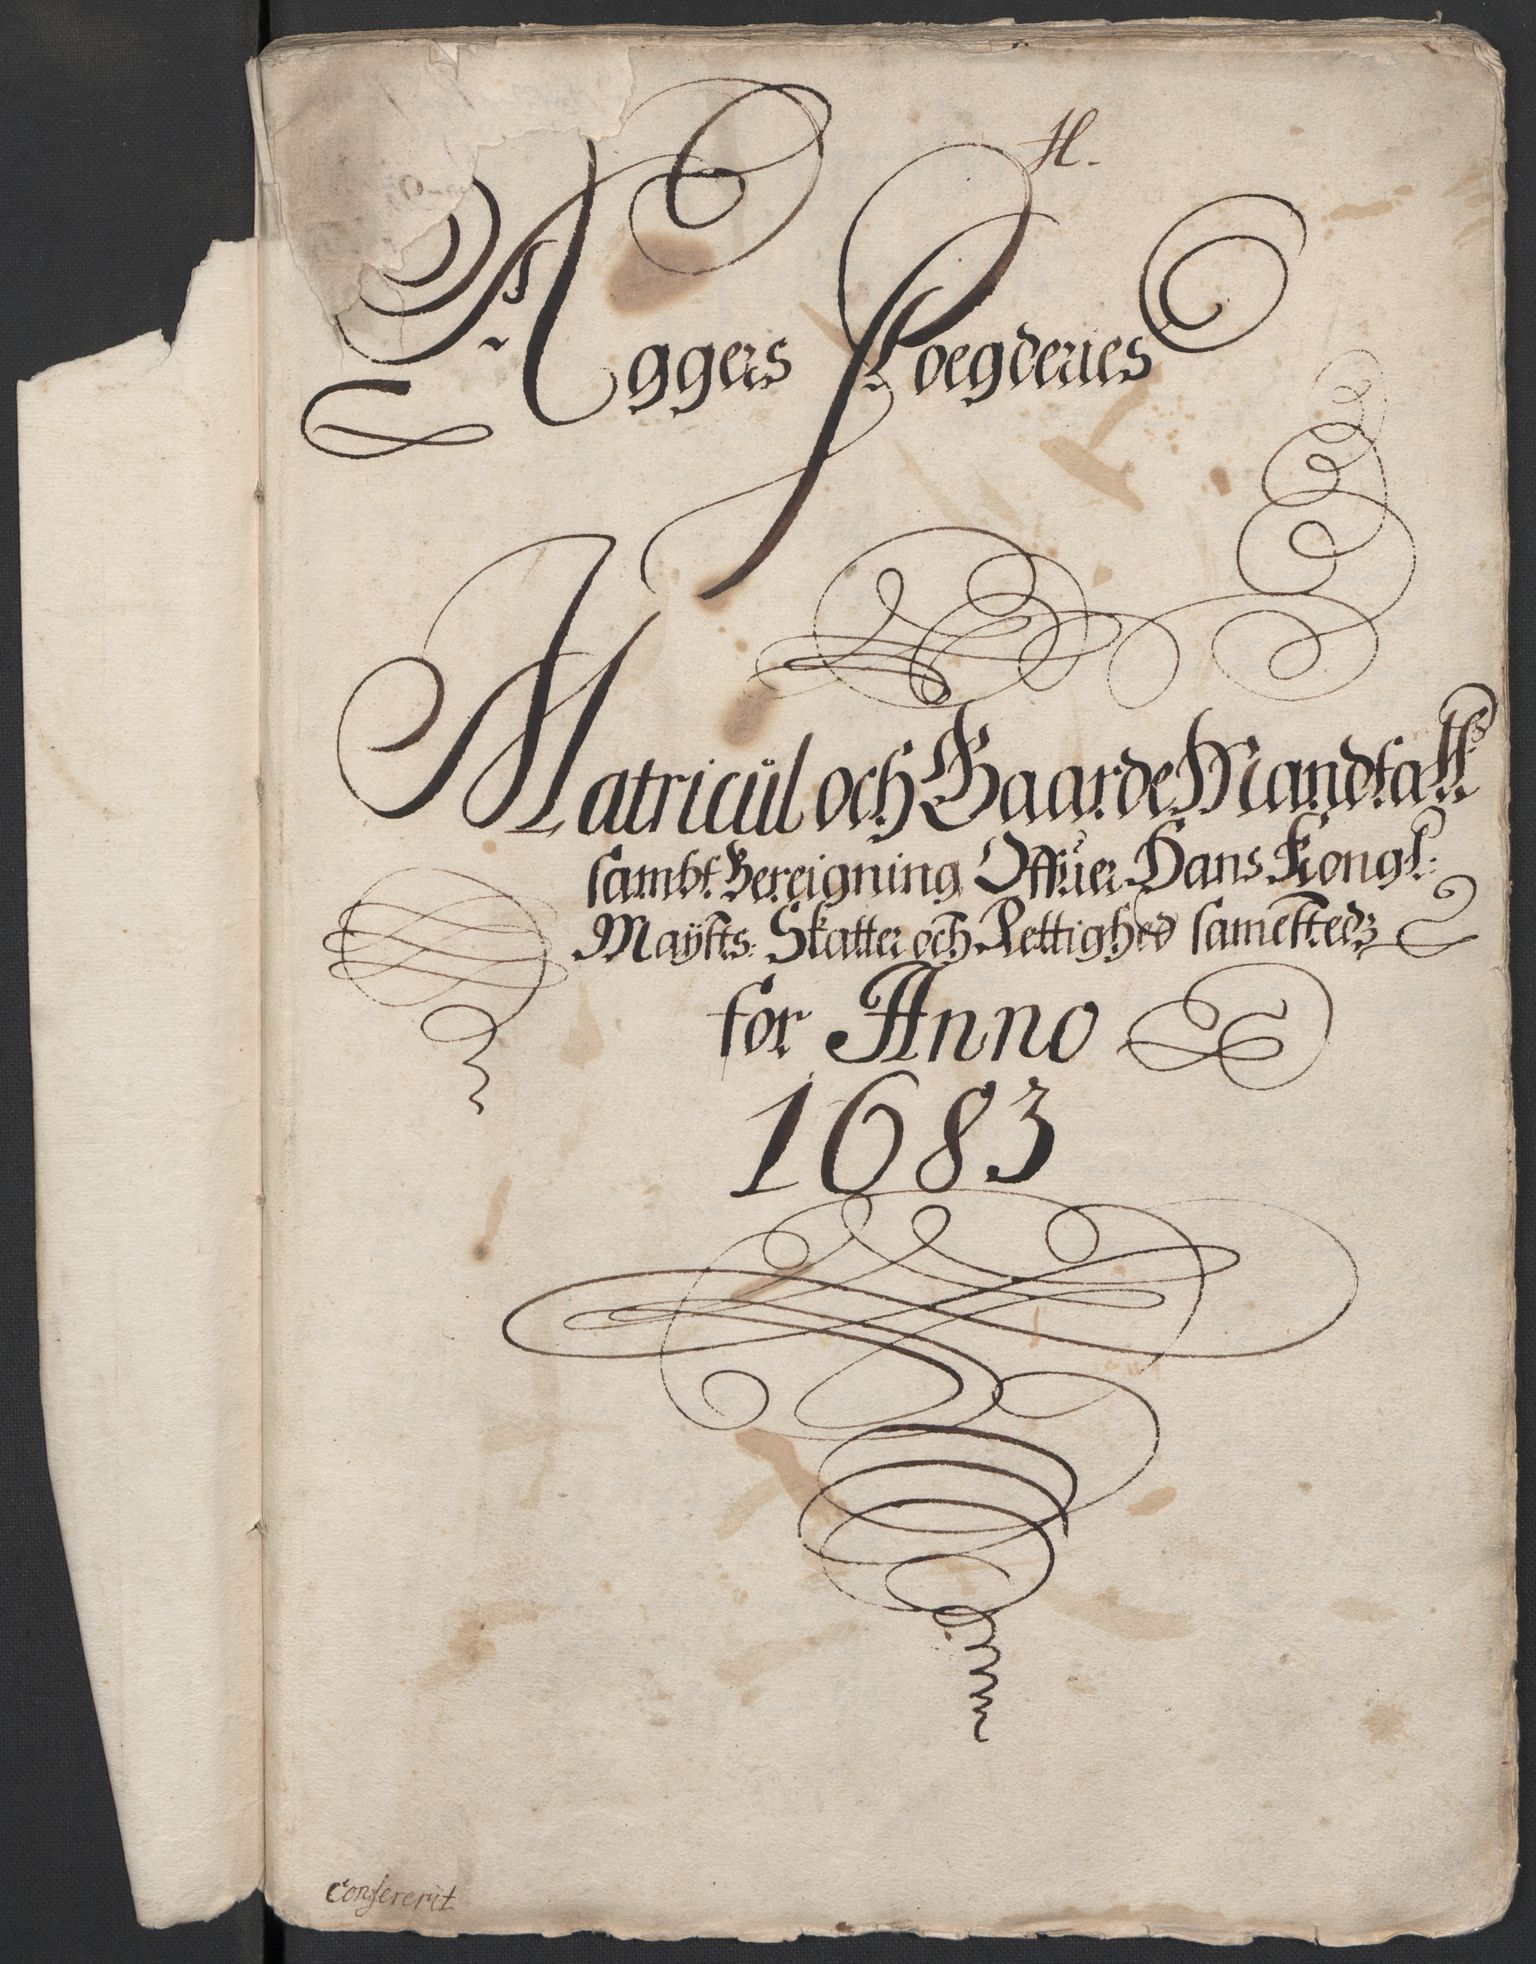 H.
Aggers Foegderies
Matricùl och Gaarde Mandtalls
sambt Bereigning Offùer Hans Kongl:
Maÿsts: Skatter och Rettighed samestedz
for Anno
1683
Confererit